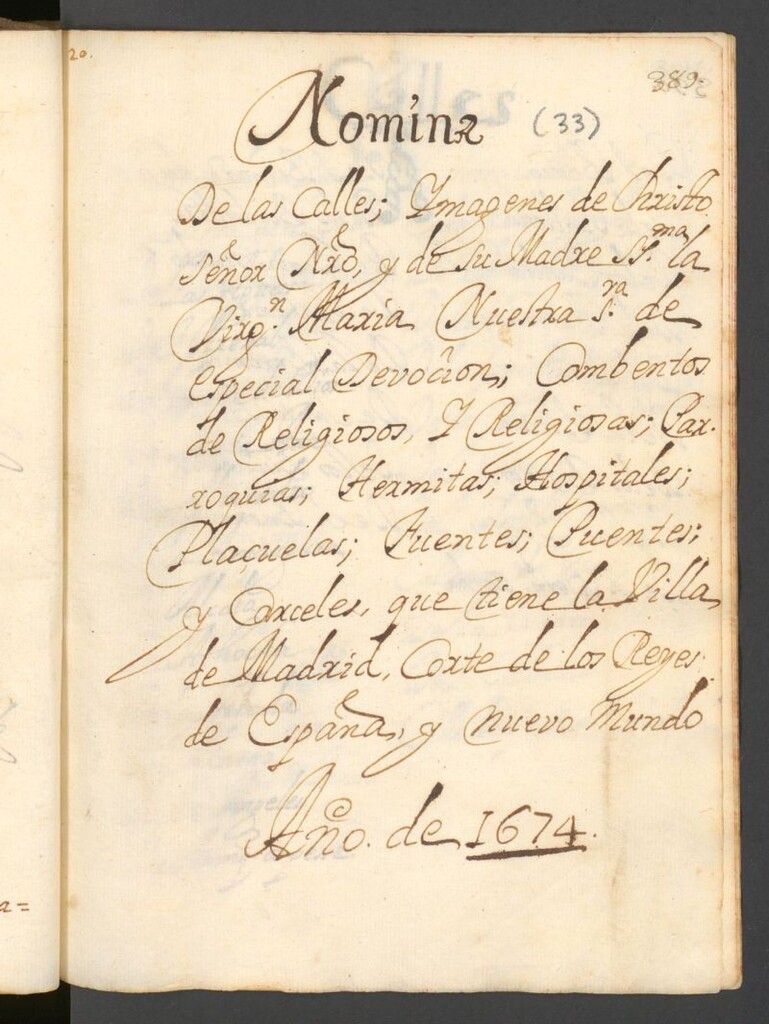 20.
389.
Nomina (33)
De las Calles; Ymagenes de Christo
Señor Nr̃o, y de su Madre SS.ma la
Virg.n Maria Nuestra S.ra de
especial Devocion; Combentos
de Religiosos, Y Religiosas; Par-
roquias; Hermitas; Hospitales;
Plaçuelas; Fuentes; Puentes;
y Carceles, que tiene la Villa
de Madrid, Corte de los Reyes
de España, y nuevo Mundo
Año. de 1674.
a=